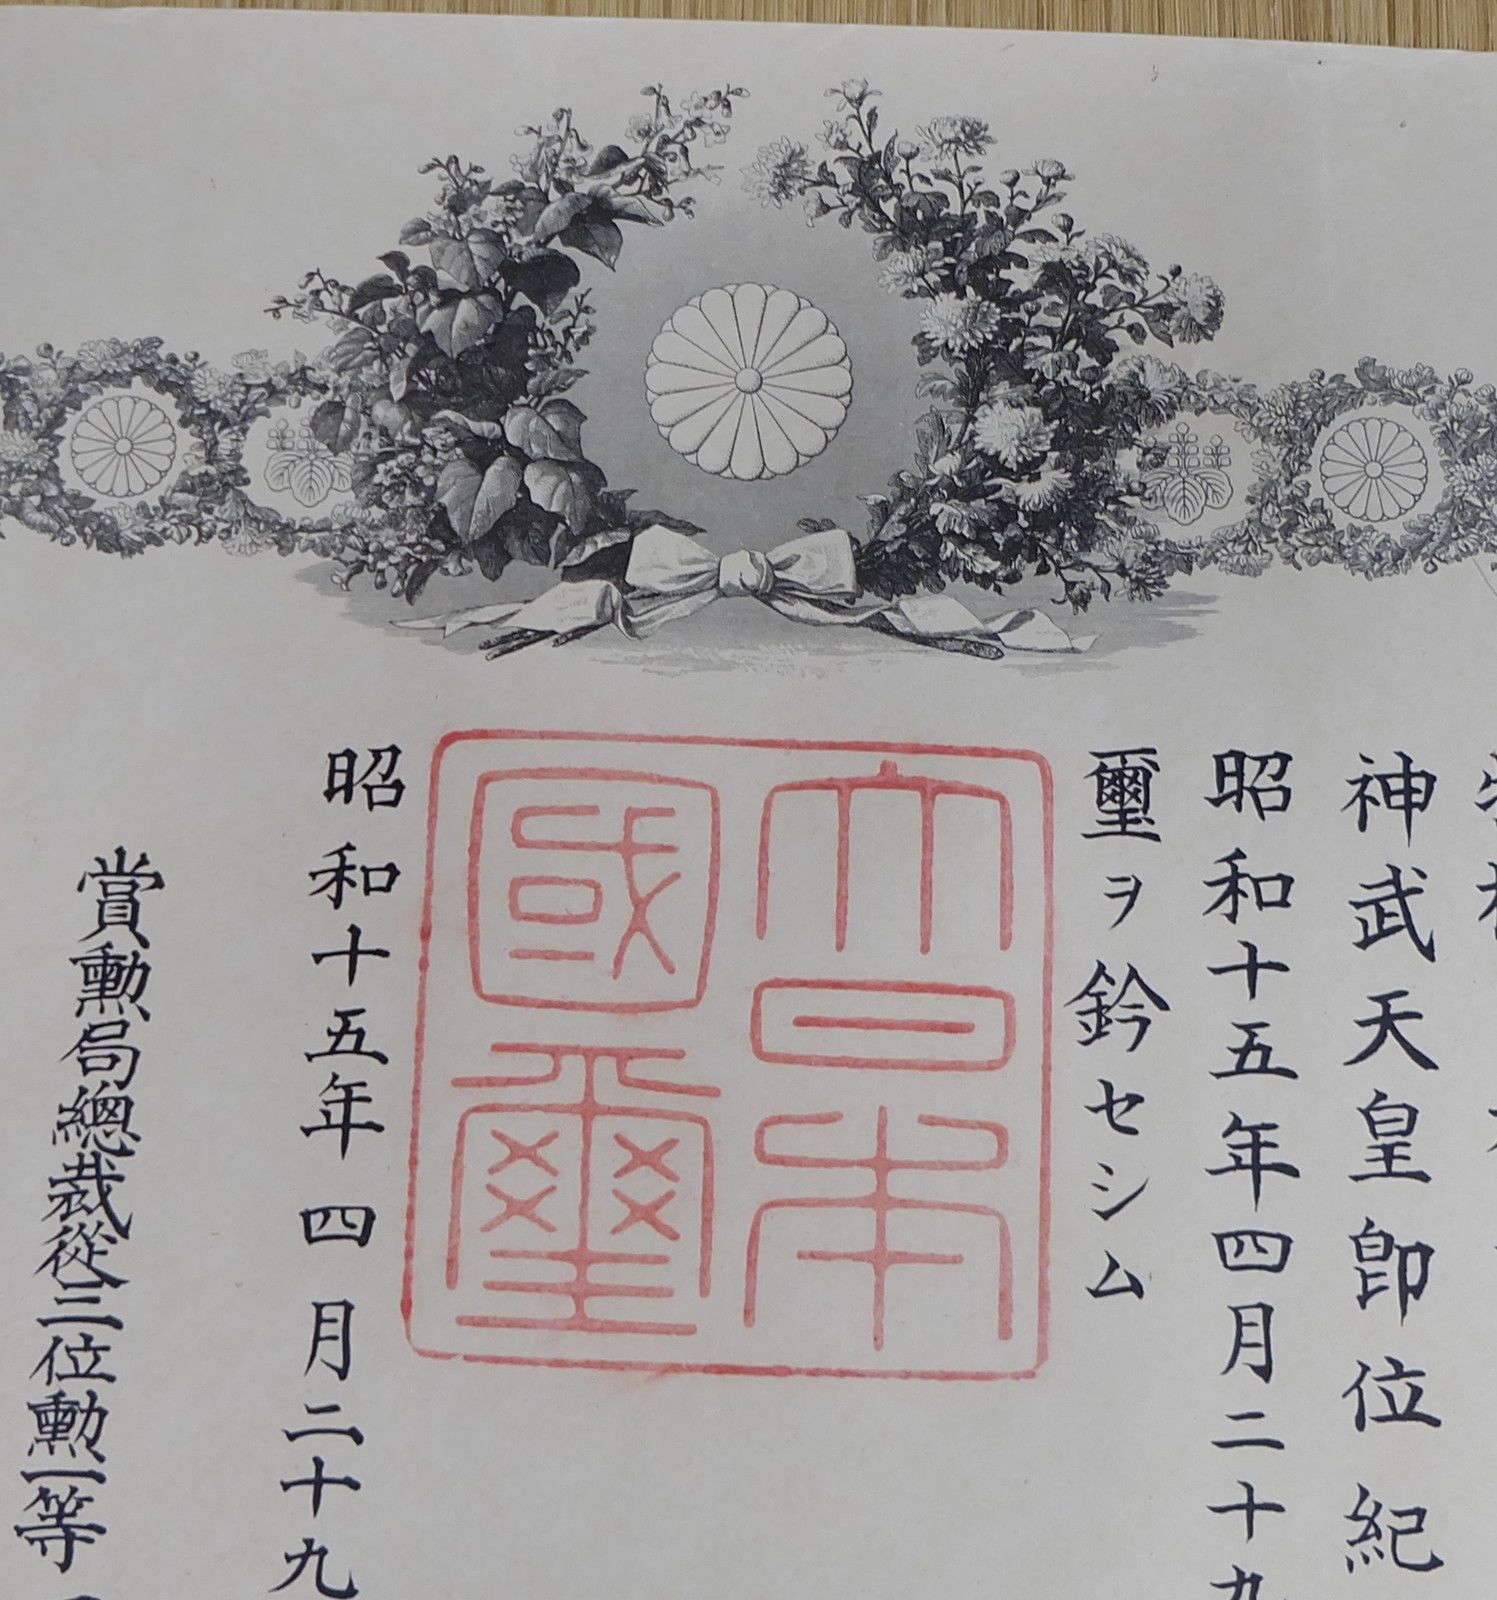 神武天皇即位紀
昭和十五年四月二十九
璽ヲ鈐セシム
大日本
國璽
昭和十五年四月二十九
賞勳局總裁從三位勳一等